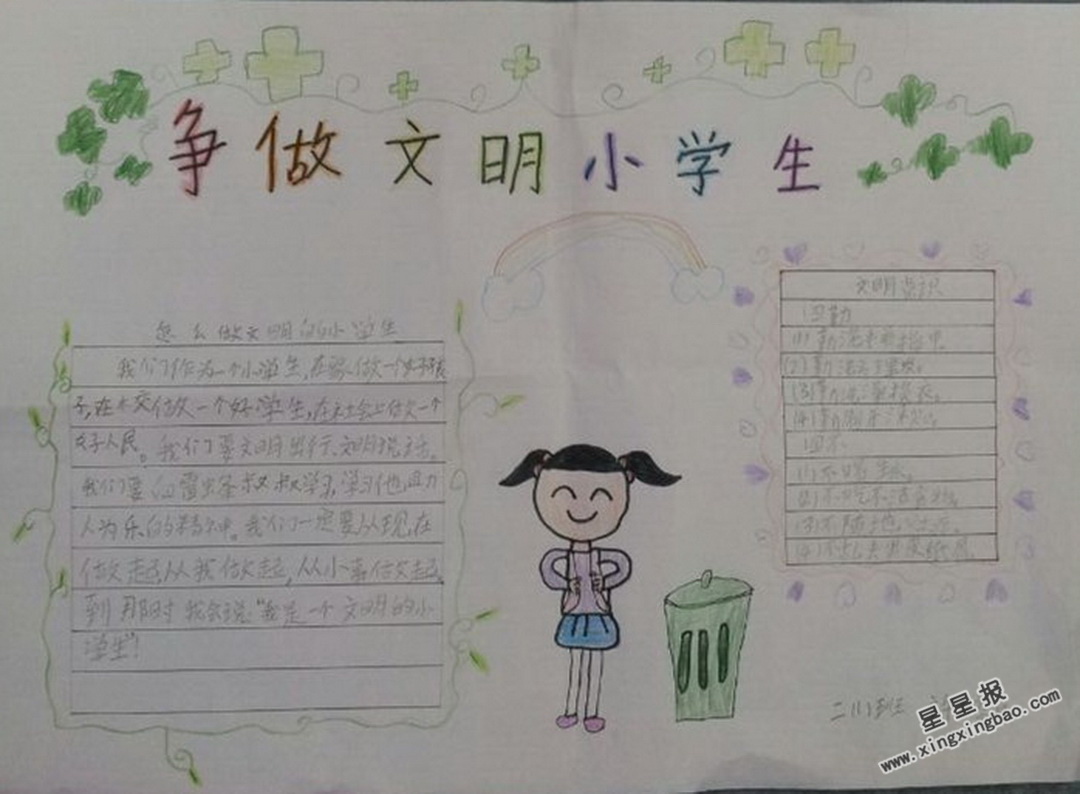 争做文明小学生
怎么做文明的小学生
我们作为一个小学生,在家做一个好孩
子,在学校做一个好学生,在社会上做一个
好人民。我们要文明出行,文明说话。
我们要向雷锋叔叔学习,学习他助
人为乐的精神。我们一定要从现在
做起,从我做起,从小事做起,
到那时我会说:“我是一个文明的小
学生”!
文明常识
四勤
(1)勤洗
(2)勤洗
(3)勤洗澡换衣。
(4)勤
四不
(1)不喝生水。
(2)不吃不洁食物。
(3)不随地吐痰。
(4)不乱
二(1)班
星星报
www.xingxingbao.com